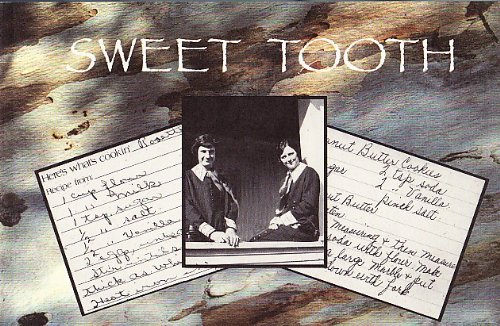 SWEET TOOTH
Here's what's cookin' Rosett
Recipe from
1 cup flour
1 " milk
1 tsp sugar
½ " salt
½ " Vanilla
2 eggs
Stir
thick as
Heat iron
nut Butter Cookies
2 tsp soda
2 " Vanilla
pinch salt
nut Butter
measuring & then measure
soda with flour. Mak
large Marble & put
down with fork